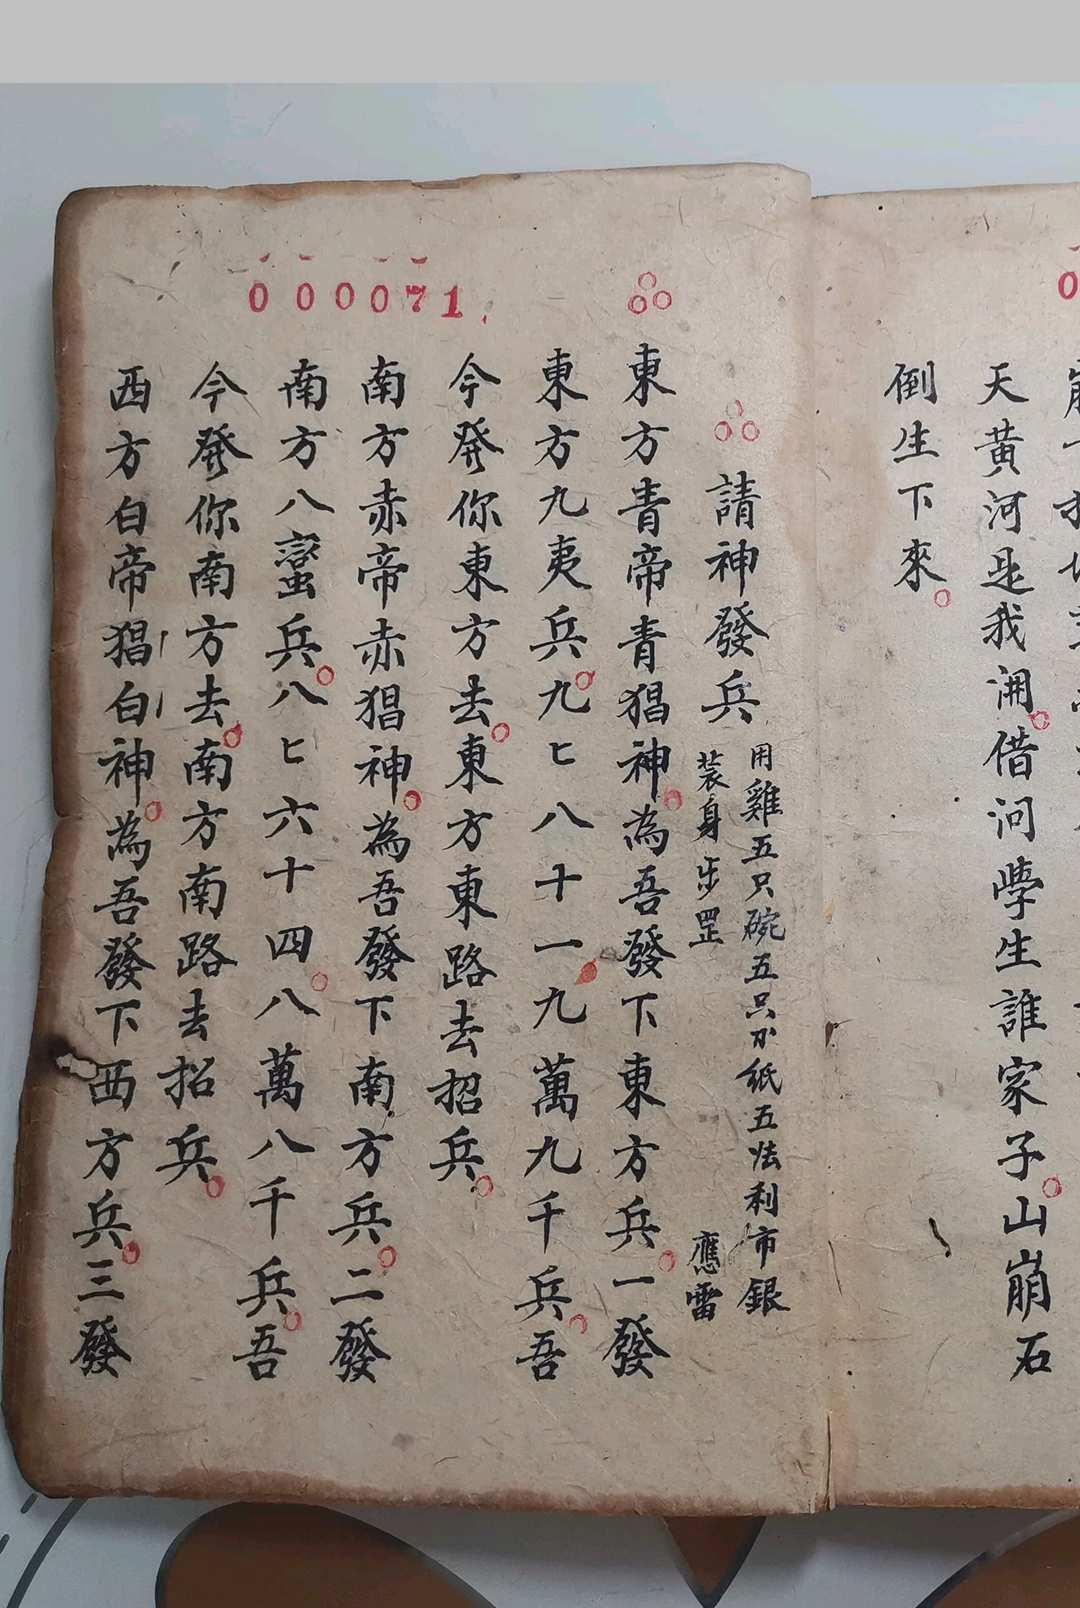 天黄河是我開借问學生誰家子山崩石
倒生下來
請神發兵
用雞五只碗五只 紙五 利市銀
裝身步罡 應雷
東方青帝青猖神為吾發下東方兵一發
東方九夷兵九七八十一九萬九千兵吾
今發你東方去東方東路去招兵
南方赤帝赤猖神為吾發下南方兵二發
南方八蛮兵八七六十四八萬八千兵吾
今發你南方去南方南路去招兵
西方白帝猖白神為吾發下西方兵三發
000071